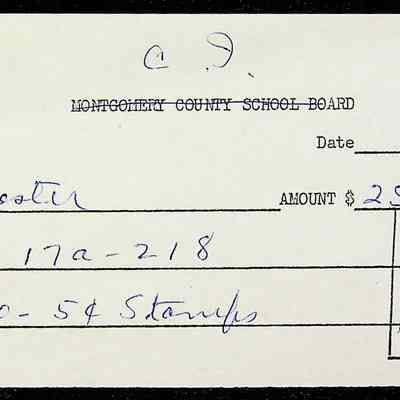 C. I.
MONTGOMERY COUNTY SCHOOL BOARD
Date
AMOUNT $ 25
17a-218
5¢ Stamps